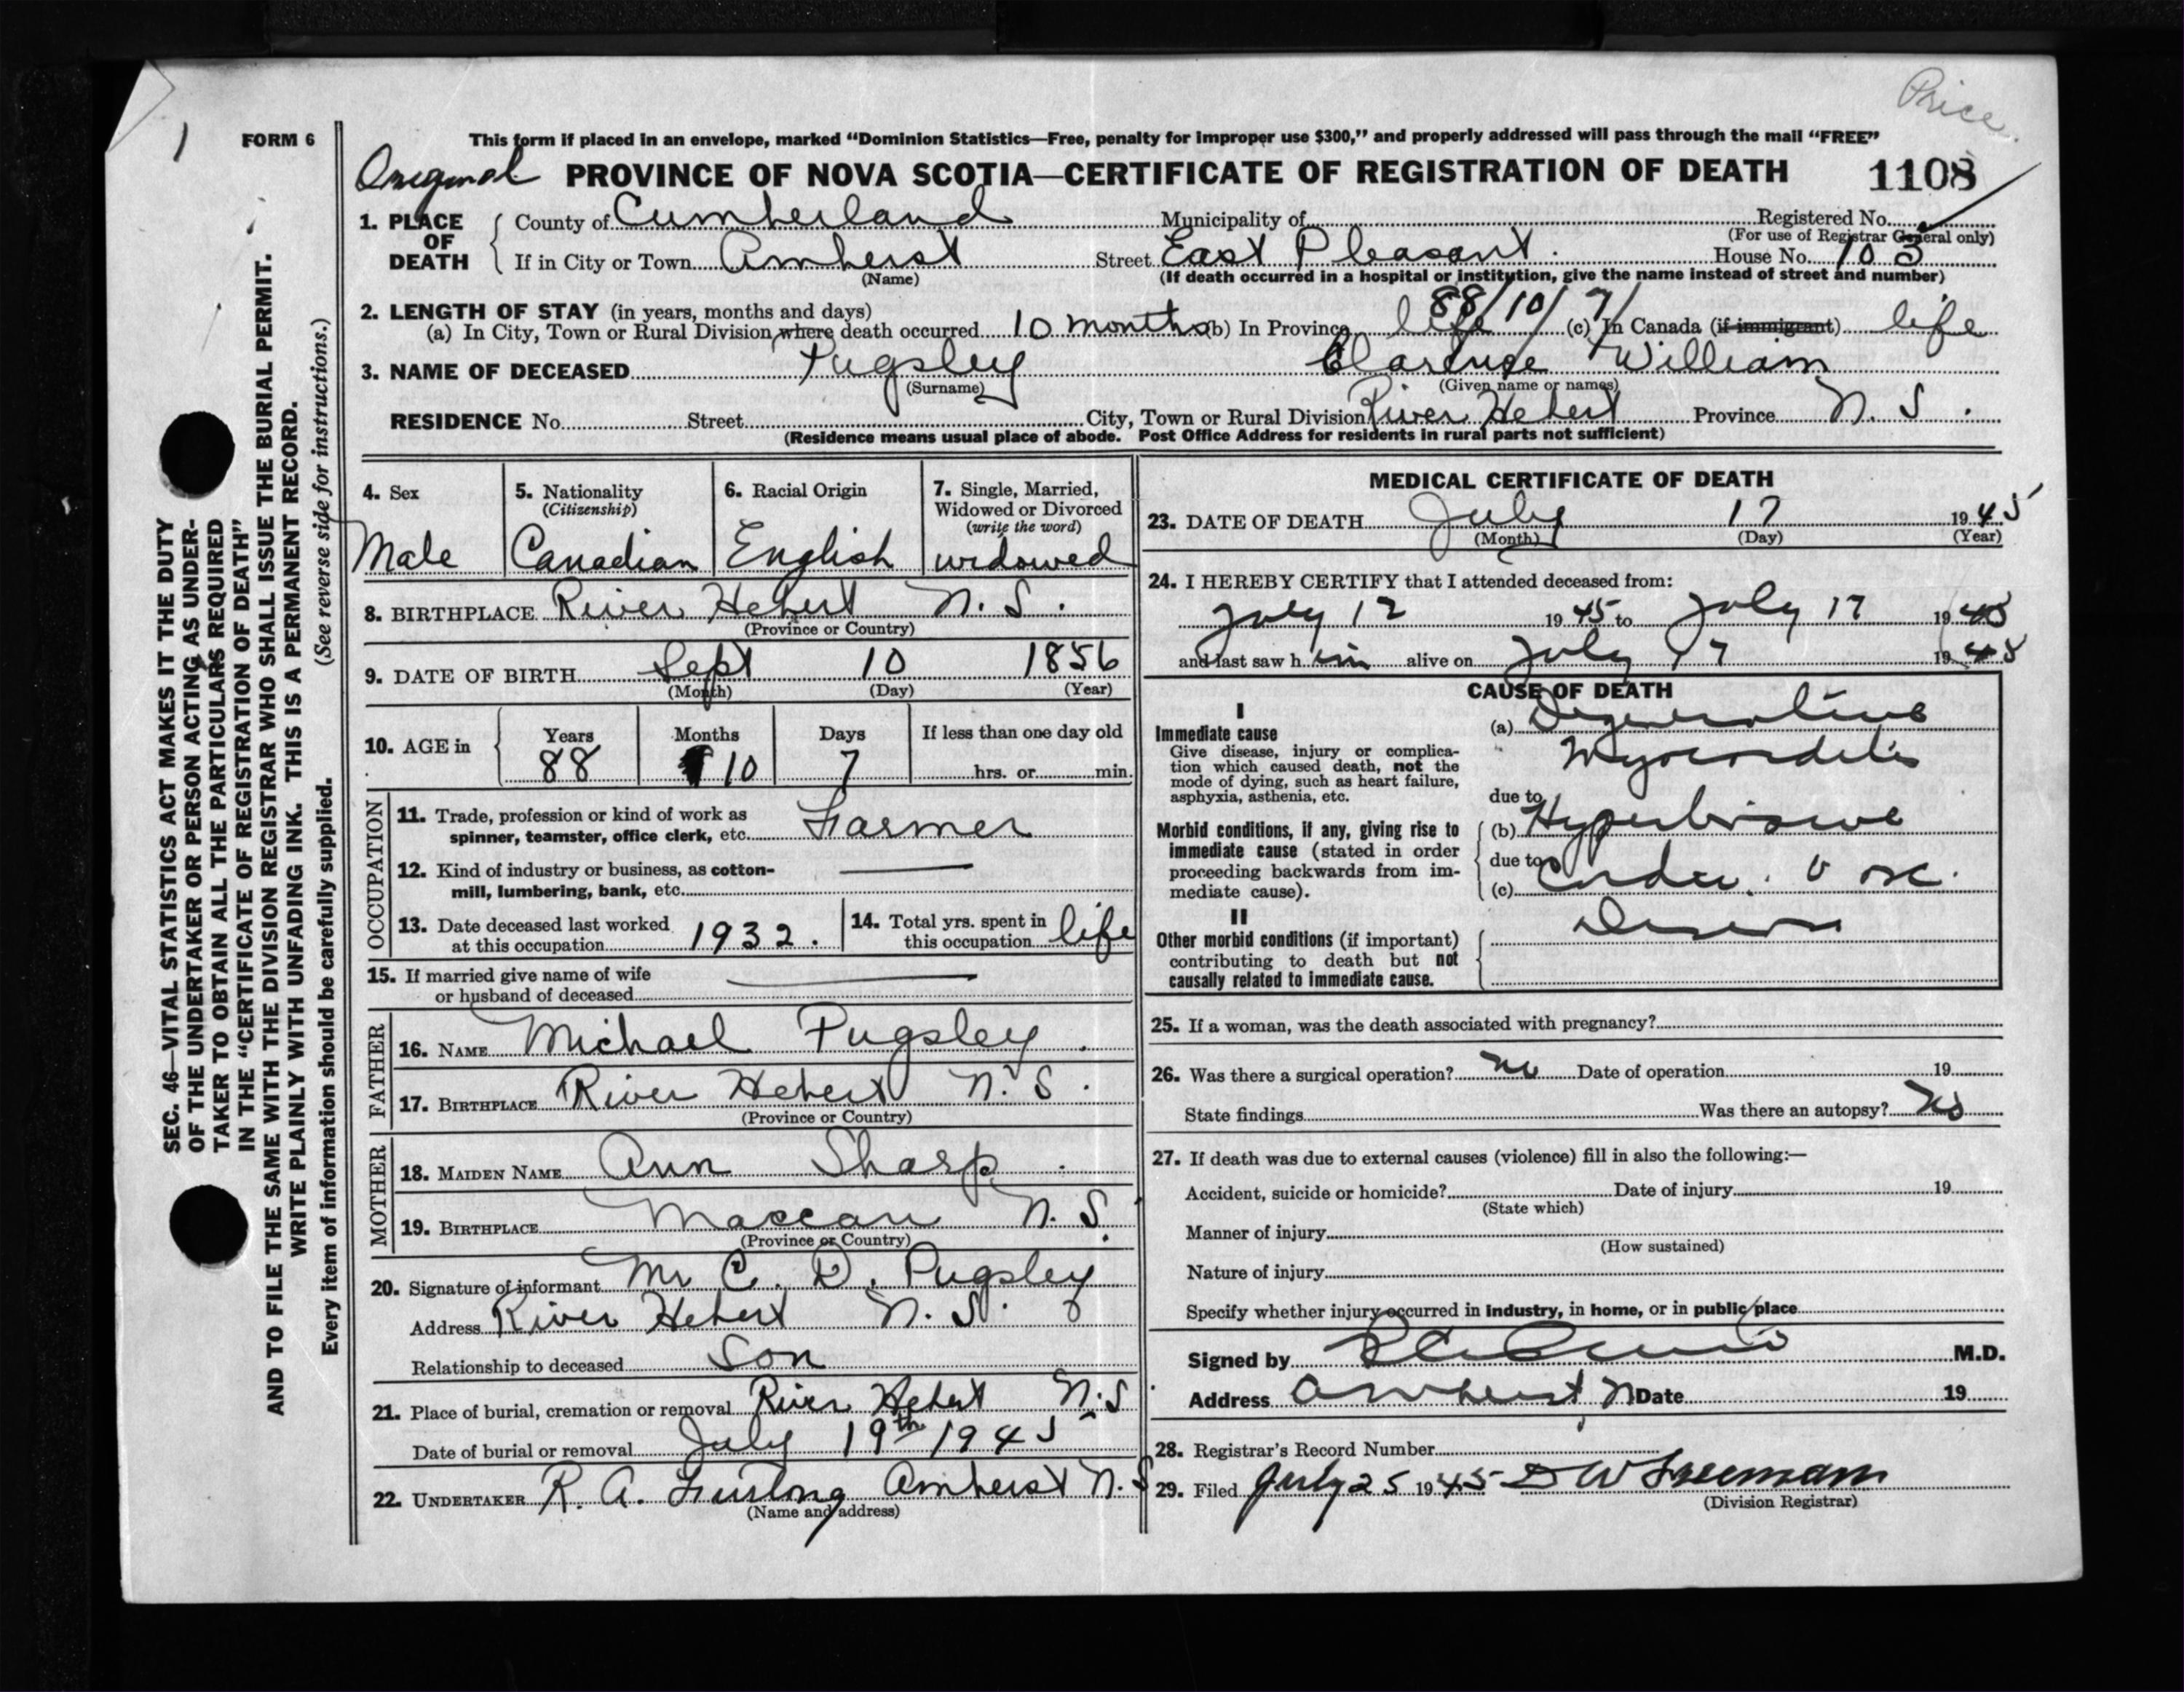 Price
1
FORM 6
This form if placed in an envelope, marked “Dominion Statistics—Free, penalty for improper use $300,” and properly addressed will pass through the mail “FREE”
Original PROVINCE OF NOVA SCOTIA—CERTIFICATE OF REGISTRATION OF DEATH 1108
1. PLACE OF DEATH County of Cumberland Municipality of Registered No.
(For use of Registrar General only)
If in City or Town Amherst Street East Pleasant. House No. 103
(Name) (If death occurred in a hospital or institution, give the name instead of street and number)
2. LENGTH OF STAY (in years, months and days) 88/10/7/
(a) In City, Town or Rural Division where death occurred 10 months (b) In Province life (c) In Canada (if immigrant) life
3. NAME OF DECEASED Pugsley Clarence William
(Surname) (Given name or names)
RESIDENCE No. Street City, Town or Rural Division River Hebert Province N. S.
(Residence means usual place of abode. Post Office Address for residents in rural parts not sufficient)
4. Sex Male
5. Nationality (Citizenship) Canadian
6. Racial Origin English
7. Single, Married, Widowed or Divorced (write the word) widowed
8. BIRTHPLACE River Hebert N. S.
(Province or Country)
9. DATE OF BIRTH Sept 10 1856
(Month) (Day) (Year)
10. AGE in Years Months Days If less than one day old
88 10 7 hrs. or min.
OCCUPATION
11. Trade, profession or kind of work as
spinner, teamster, office clerk, etc. Farmer
12. Kind of industry or business, as cotton-
mill, lumbering, bank, etc. —
13. Date deceased last worked
at this occupation 1932.
14. Total yrs. spent in
this occupation life
15. If married give name of wife
or husband of deceased —
FATHER
16. NAME Michael Pugsley.
17. BIRTHPLACE River Hebert N. S.
(Province or Country)
MOTHER
18. MAIDEN NAME Ann Sharp.
19. BIRTHPLACE Maccan N. S.
(Province or Country)
20. Signature of informant Mr C. D. Pugsley
Address River Hebert N. S.
Relationship to deceased Son
21. Place of burial, cremation or removal River Hebert N. S
Date of burial or removal July 19th 1945
22. UNDERTAKER R. A. Furlong Amherst N. S
(Name and address)
MEDICAL CERTIFICATE OF DEATH
23. DATE OF DEATH July 17 1945
(Month) (Day) (Year)
24. I HEREBY CERTIFY that I attended deceased from:
July 12 1945 to July 17 1945
and last saw him alive on July 17 1945
CAUSE OF DEATH
I
Immediate cause
Give disease, injury or complica-
tion which caused death, not the
mode of dying, such as heart failure,
asphyxia, asthenia, etc.
(a) Degenerative
Myocarditis
due to
Morbid conditions, if any, giving rise to
immediate cause (stated in order
proceeding backwards from im-
mediate cause).
(b) Hypertensive
due to
(c) Cardio. Vasc.
Disease
II
Other morbid conditions (if important)
contributing to death but not
causally related to immediate cause.
25. If a woman, was the death associated with pregnancy?
26. Was there a surgical operation? no Date of operation 19
State findings Was there an autopsy? no
27. If death was due to external causes (violence) fill in also the following:—
Accident, suicide or homicide? Date of injury 19
(State which)
Manner of injury
(How sustained)
Nature of injury
Specify whether injury occurred in industry, in home, or in public place
Signed by M.D.
Address Amherst, N Date 19
28. Registrar's Record Number
29. Filed July 25 1945 D W Freeman
(Division Registrar)
SEC. 46—VITAL STATISTICS ACT MAKES IT THE DUTY
OF THE UNDERTAKER OR PERSON ACTING AS UNDER-
TAKER TO OBTAIN ALL THE PARTICULARS REQUIRED
IN THE “CERTIFICATE OF REGISTRATION OF DEATH”
AND TO FILE THE SAME WITH THE DIVISION REGISTRAR WHO SHALL ISSUE THE BURIAL PERMIT.
WRITE PLAINLY WITH UNFADING INK. THIS IS A PERMANENT RECORD.
Every item of information should be carefully supplied. (See reverse side for instructions.)